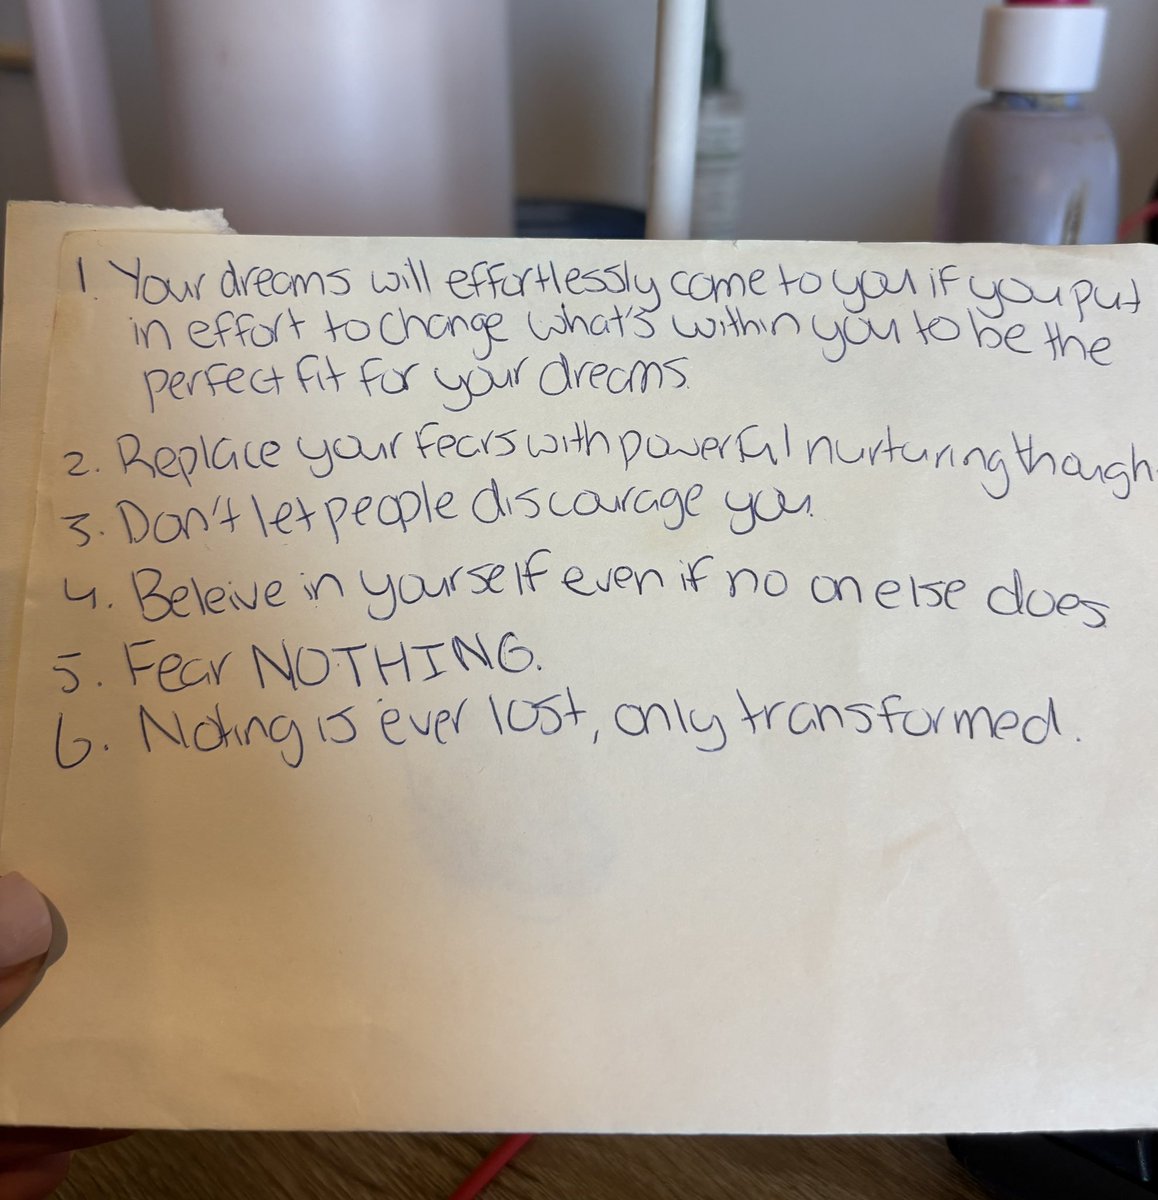 1. Your dreams will effortlessly come to you if you put
in effort to change what's within you to be the
perfect fit for your dreams.
2. Replace your fears with powerful nurturing though
3. Don't let people discourage you.
4. Beleive in yourself even if no on else does
5. Fear NOTHING.
6. Noting is ever lost, only transformed.